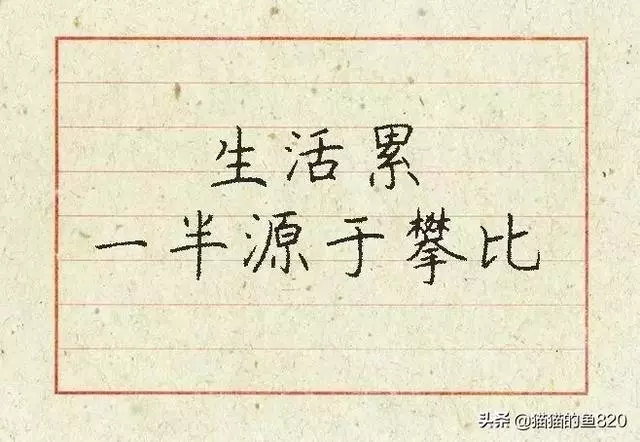 生活累
一半源于攀比
头条 @猫猫的鱼820